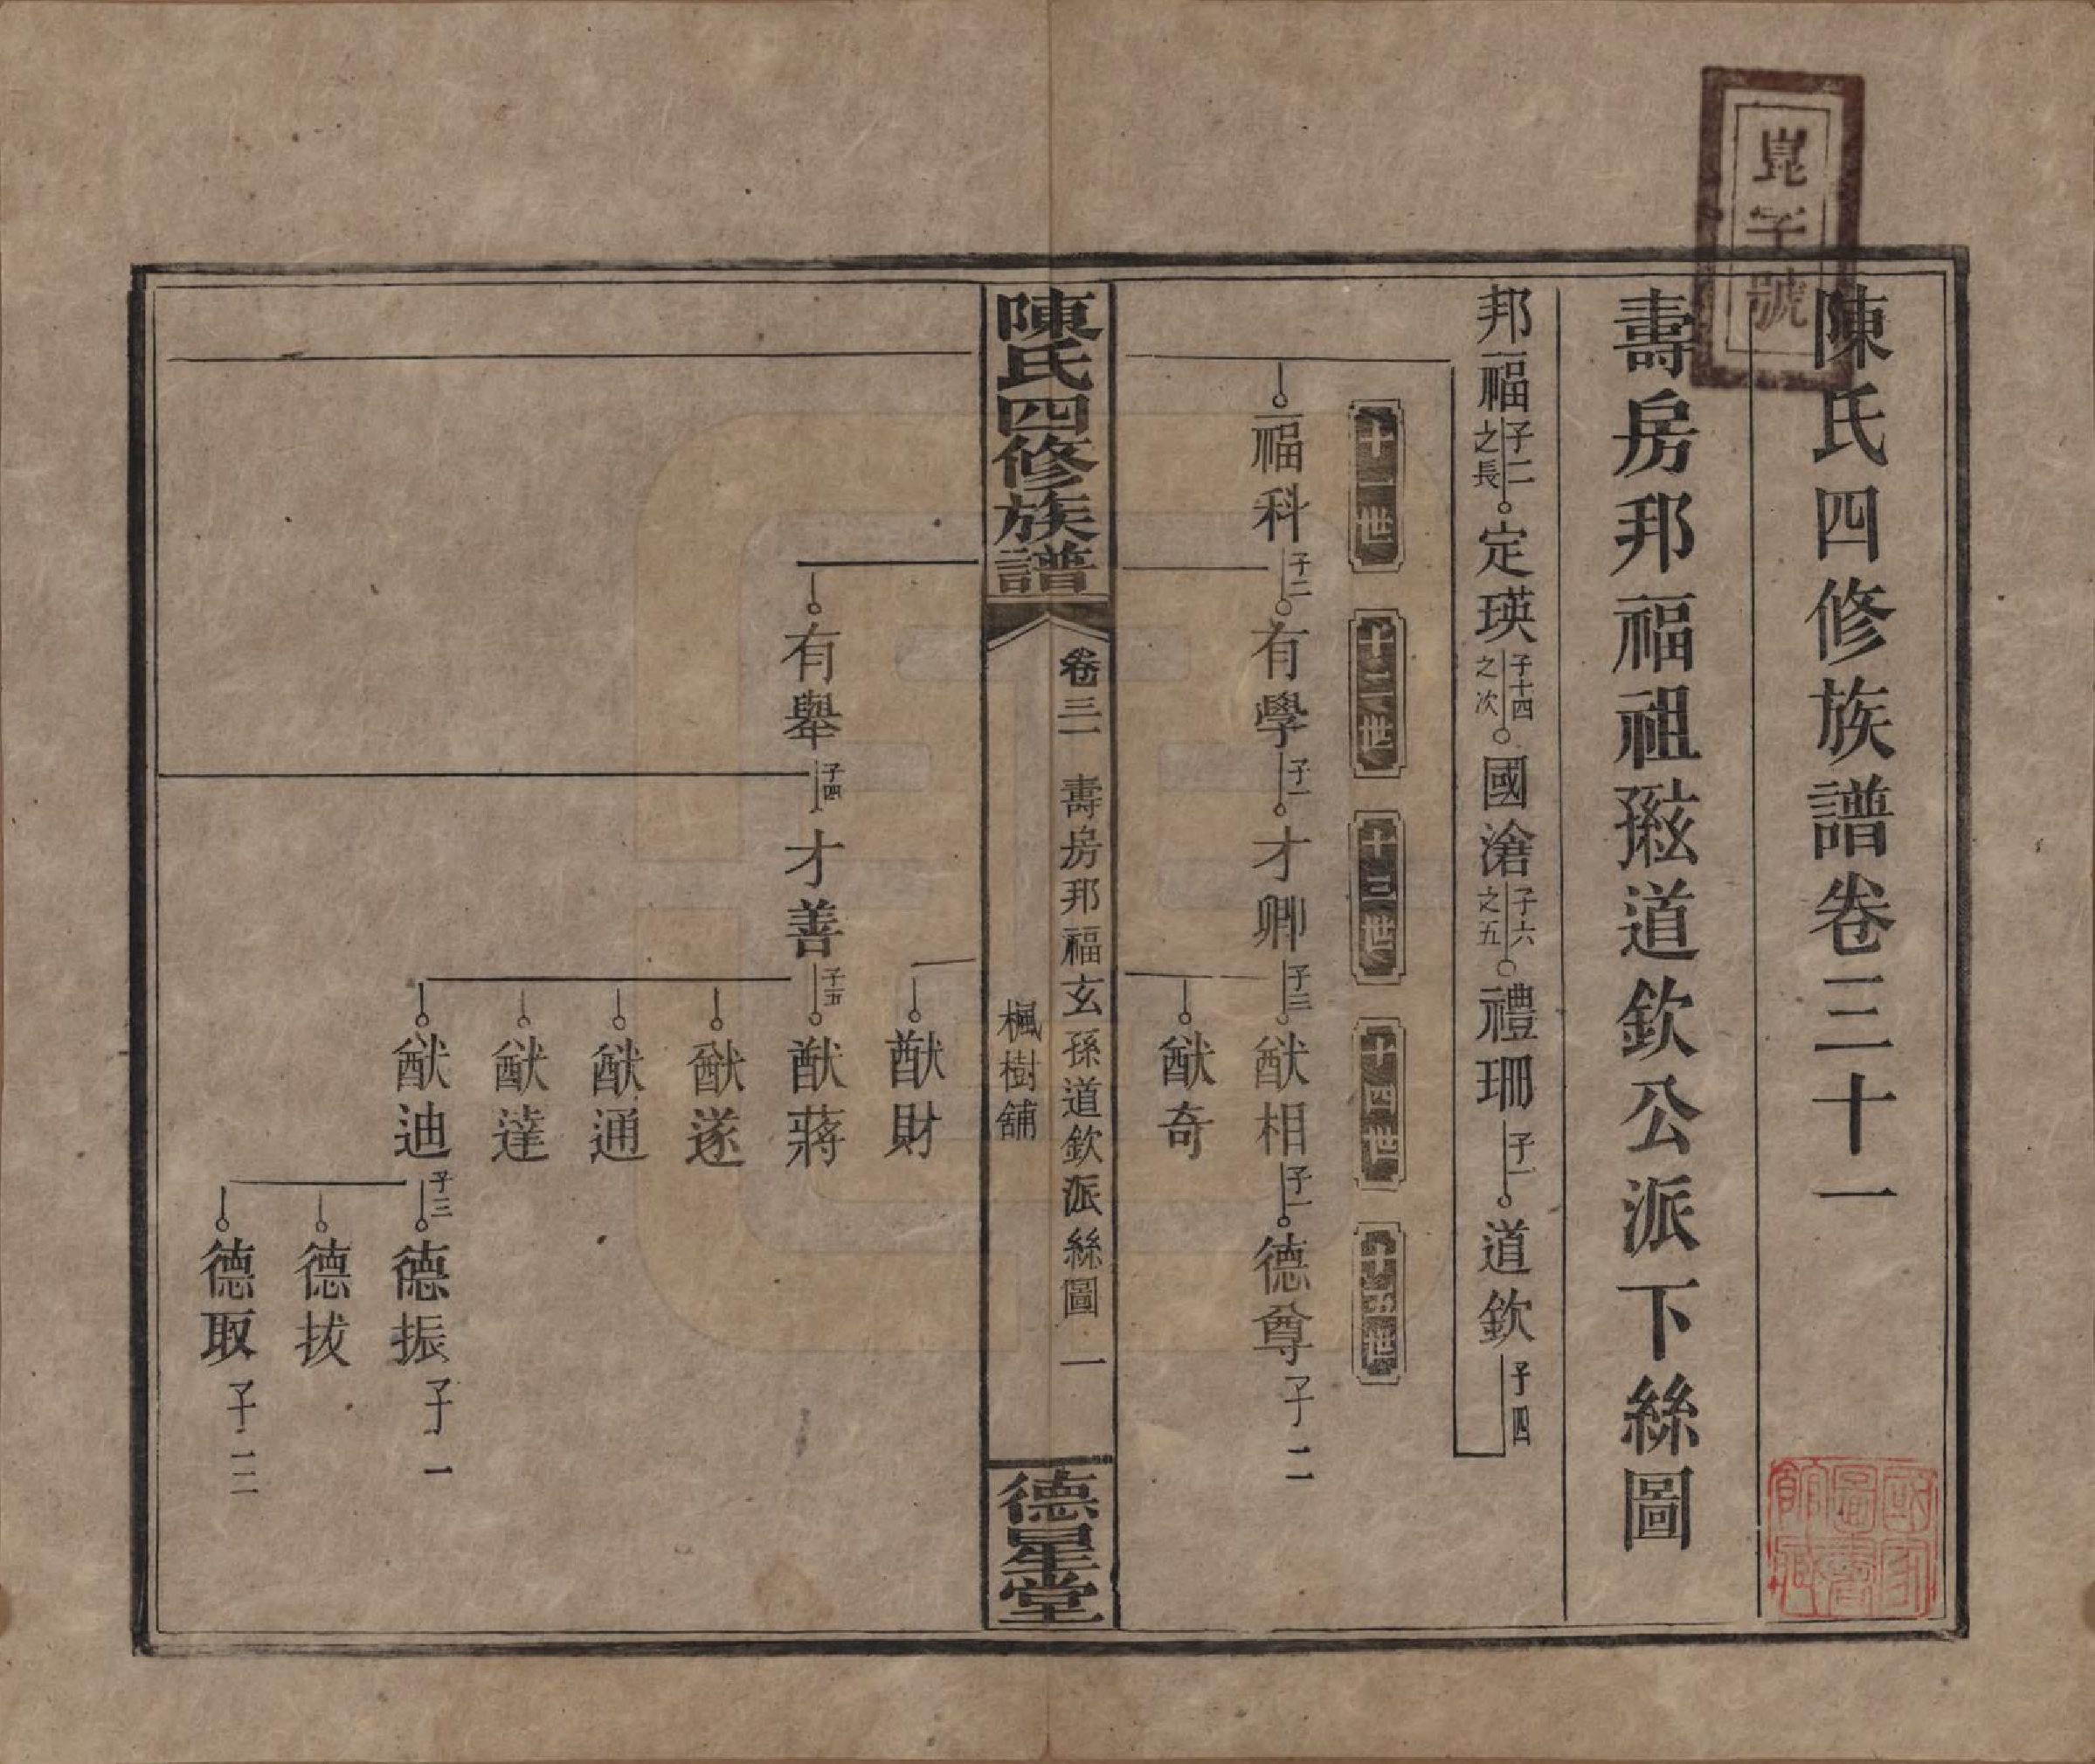 崑字號
陳氏四修族譜卷三十一
壽房邦福祖𤣥道欽公派下絲圖
邦福 子二之長 定瑛 子十四之次 國滄 子六之五 禮珊 子一 道欽 子四
十一世
十二世
十三世
十四世
十五世
福科 子二 有學 子一 才卿 子三 猷相 子一 德尊 子二
猷奇
陳氏四修族譜
卷三一 壽房邦福玄孫道欽派絲圖 一
楓樹舖
德星堂
猷財
有舉 子四 才善 子五 猷蔣
猷遂
猷通
猷達
猷迪 子三 德振 子一
德拔
德取 子二
國家圖書館藏